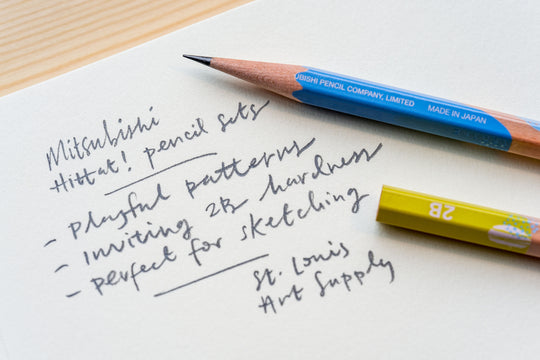 UBISHI PENCIL COMPANY, LIMITED MADE IN JAPAN
Mitsubishi
Hittat! pencil sets
- playful patterns
- Inviting 2B hardness
- perfect for sketching
St. Louis
Art Supply
2B